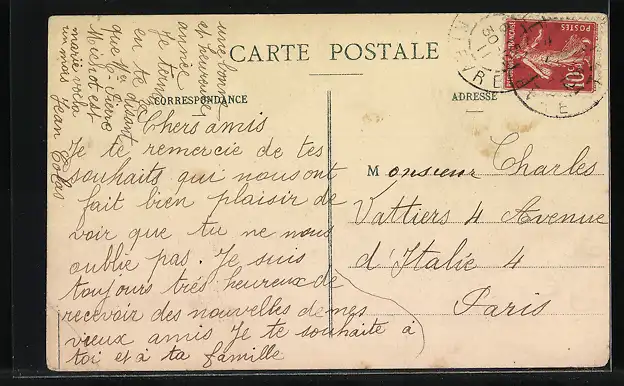 CARTE POSTALE
CORRESPONDANCE
ADRESSE
POSTES
10c
Chers amis
Je te remercie de tes
souhaits qui nous ont
fait bien plaisir de
voir que tu ne nous
oublie pas. Je suis
toujours très heureux de
recevoir des nouvelles de mes
vieux amis Je te souhaite à
toi et à ta famille
une bonne
et heureuse
année
Je termine
en te disant
que Pierre
Michot est
marié vela
un mois Jean Colas
Monsieur Charles
Vattiers 4 Avenue
d'Italie 4
Paris